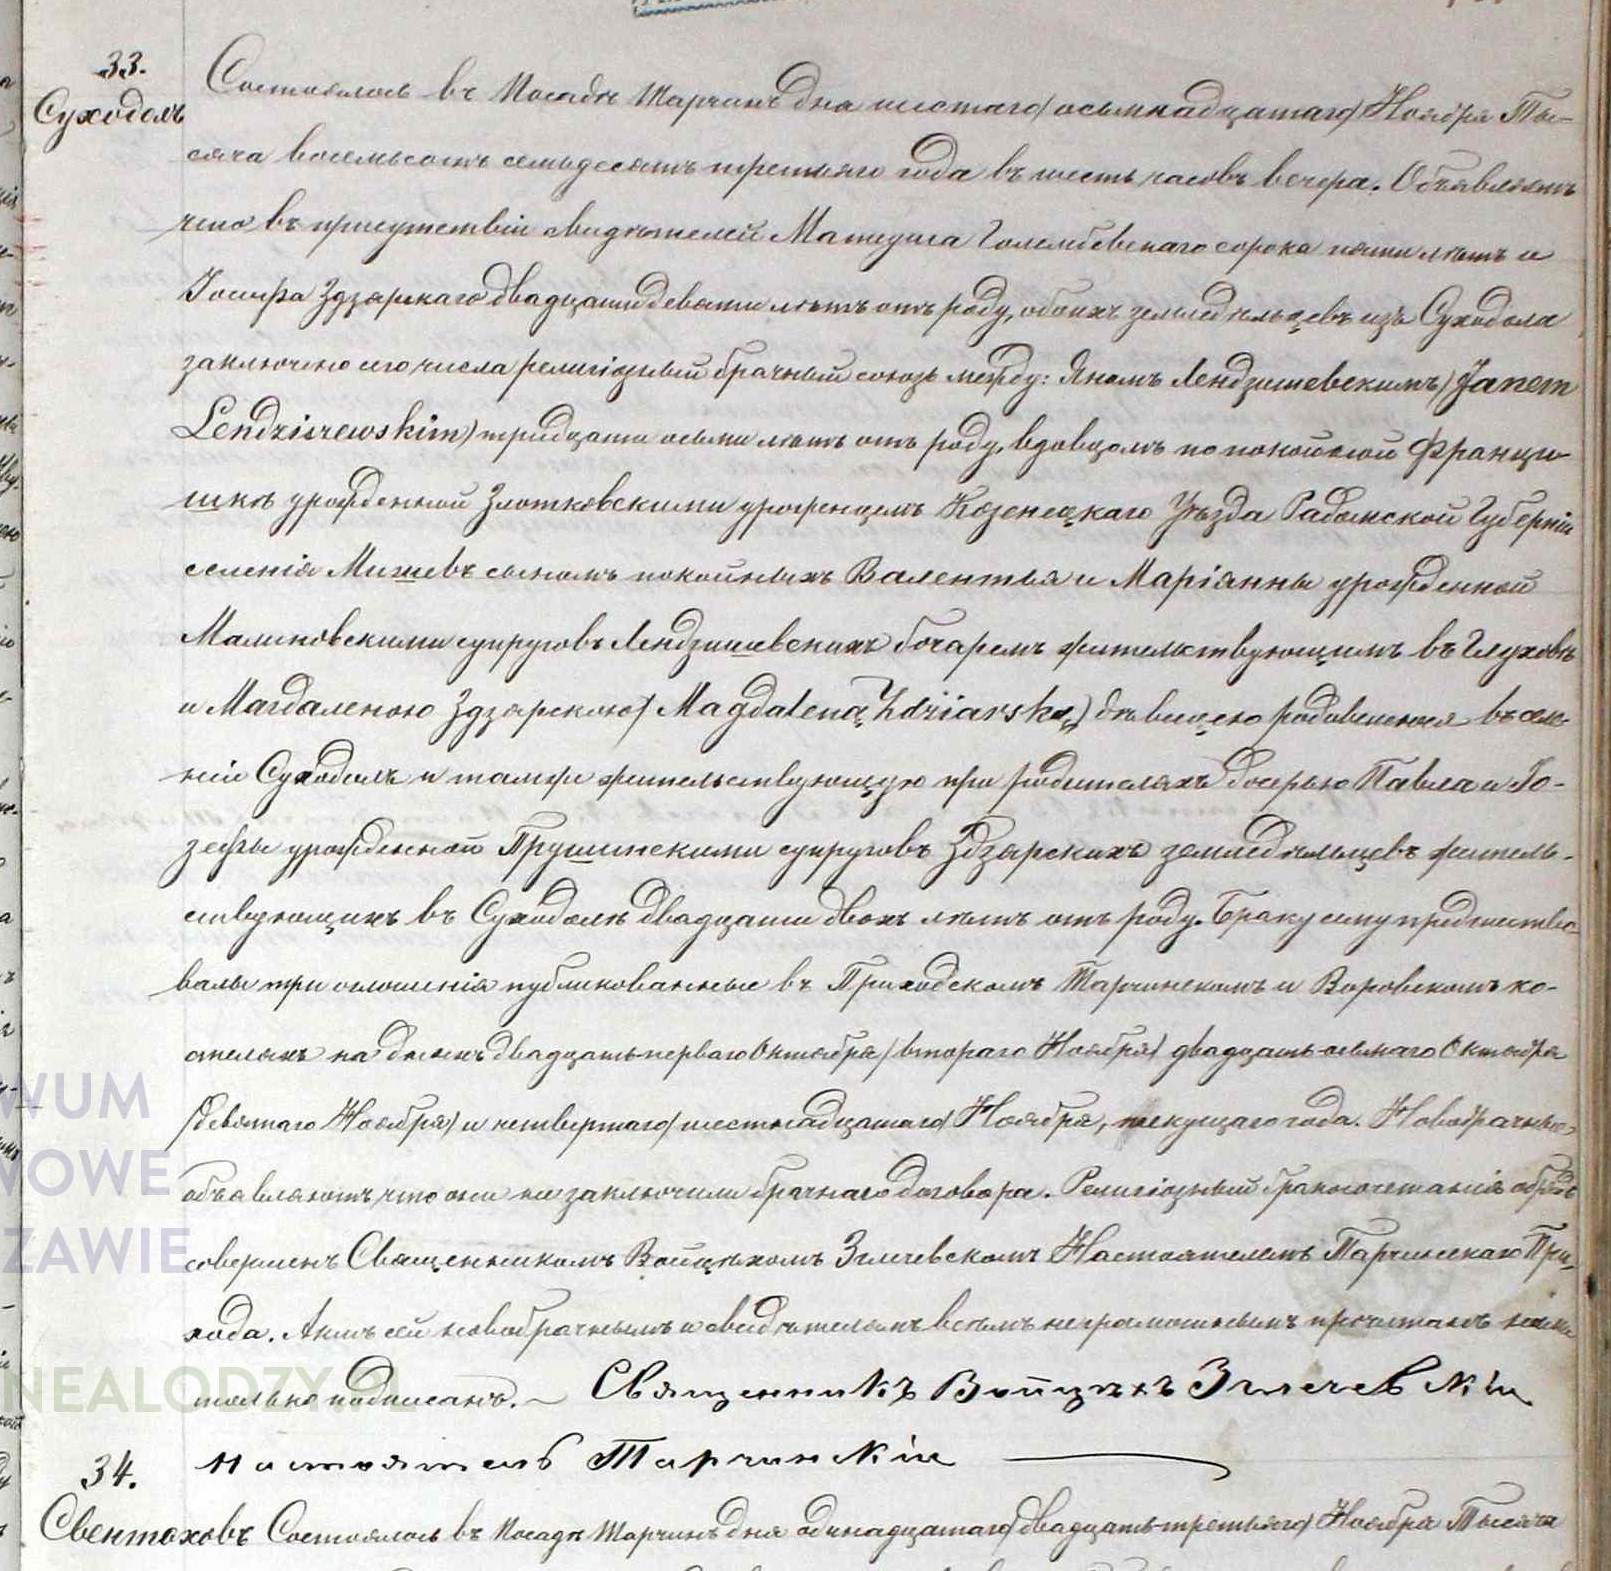 33.
Суходолъ
Состоялось въ Посадѣ Тарчинѣ дня шестаго /осьмнадцатаго/ Ноября Ты-
сяча восемьсотъ семьдесятъ третьяго года въ шесть часовъ вечера. Объявляемъ
что въ присутствіи свидѣтелей Матеуша Голембевскаго сорока пяти лѣтъ и
Іосифа Здзярскаго двадцати девяти лѣтъ отъ роду, обоихъ земледѣльцевъ изъ Суходола
заключено сего числа религіозный брачный союзъ между: Яномъ Лендзишевскимъ /Janem
Lendziszewskim/ тридцати осьми лѣтъ отъ роду, вдовцомъ по покойной Франци-
шкѣ урожденной Злотковскими урожденцемъ Козенецкаго Уѣзда Радомской Губерніи
селенія Мишевъ сыномъ покойныхъ Валентыя и Маріянны урожденной
Малиновскими супруговъ Лендзишевскихъ бочаремъ жительствующимъ въ Глуховѣ
и Магдаленою Здзярскою /Magdaleną Zdziarską/ дѣвицею родовшеюся въ селе-
ніи Суходолъ и тамже жительствующую при родителяхъ дочерью Павла и Іо-
зефы урожденной Прушинскими супруговъ Здзярскихъ земледѣльцевъ житель-
ствующихъ въ Суходолѣ двадцати двохъ лѣтъ отъ роду. Браку сему предшество-
вали три оглошенія публикованные въ Приходскомъ Тарчинскомъ и Воровскомъ ко-
стелахъ на дняхъ двадцать перваго Октября /втораго Ноября/ двадцать осьмаго Октября
/девятаго Ноября/ и четвертаго /шестнадцатаго/ Ноября, текущаго года. Новобрачные
объявляютъ что они не заключили брачнаго договора. Религіозный бракосочетанія обрядъ
совершенъ Священникомъ Войцѣхомъ Змечевскомъ Настоятелемъ Тарчинскаго При-
хода. Актъ сей новобрачнымъ и свидѣтелямъ всѣмъ неграмотнымъ прочитанъ нами
только подписанъ. — Священникъ Войцѣхъ Змечевскій
Настоятель Тарчинскій
34.
Свентоховъ Состоялось въ Посадѣ Тарчинѣ дня одинадцатаго /двадцать третьяго/ Ноября Тысяча
WUM
NOWE
ZAWIE
NEALODZY.PL